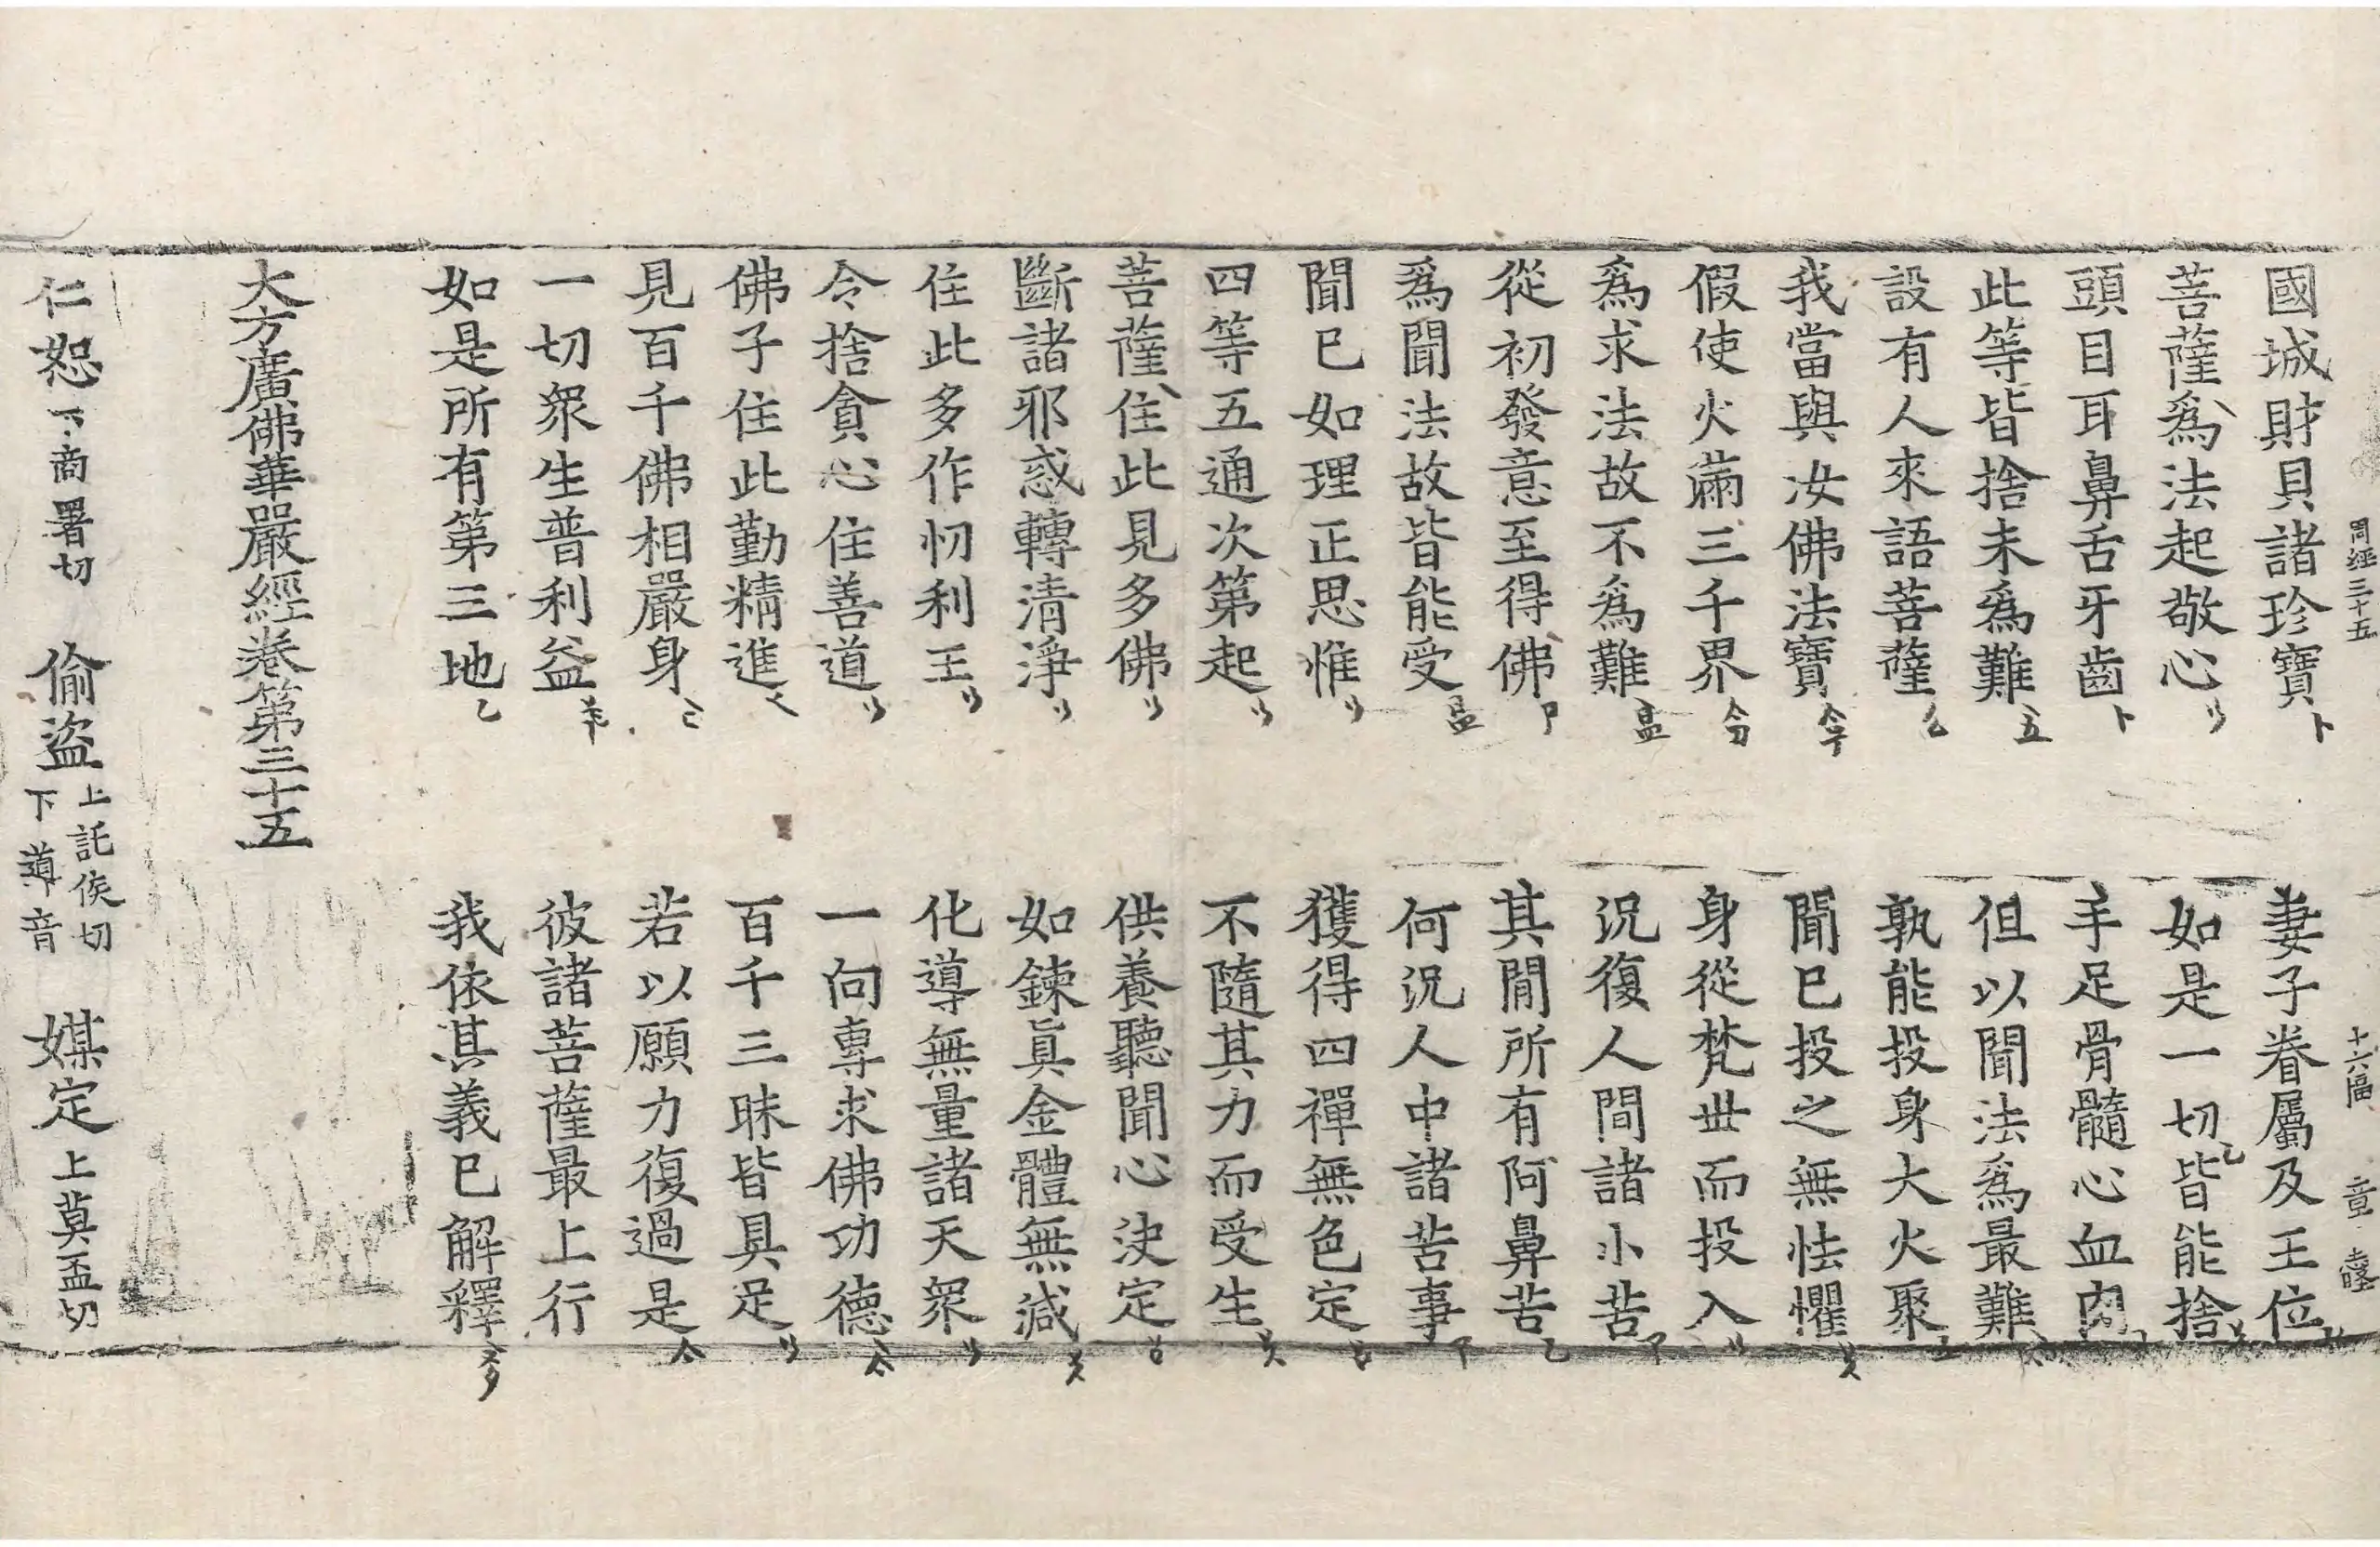 周經三十五 十六
國城財貝諸珍寶 妻子眷屬及王位
菩薩爲法起敬心 如是一切皆能捨
頭目耳鼻舌牙齒 手足骨髓心血肉
此等皆捨未爲難 但以聞法爲最難
設有人來語菩薩 孰能投身大火聚
我當與汝佛法寶 聞已投之無怯懼
假使火滿三千界 身從梵世而投入
爲求法故不爲難 況復人間諸小苦
從初發意至得佛 其閒所有阿鼻苦
爲聞法故皆能受 何況人中諸苦事
聞已如理正思惟 獲得四禪無色定
四等五通次第起 不隨其力而受生
菩薩住此見多佛 供養聽聞心決定
斷諸邪惑轉清淨 如鍊眞金體無減
住此多作忉利王 化導無量諸天衆
令捨貪心住善道 一向專求佛功德
佛子住此勤精進 百千三昧皆具足
見百千佛相嚴身 若以願力復過是
一切衆生普利益 彼諸菩薩最上行
如是所有第三地 我依其義已解釋
大方廣佛華嚴經卷第三十五
仁恕 下商署切 偷盜 上託侯切 下導音 媒定 上莫盃切